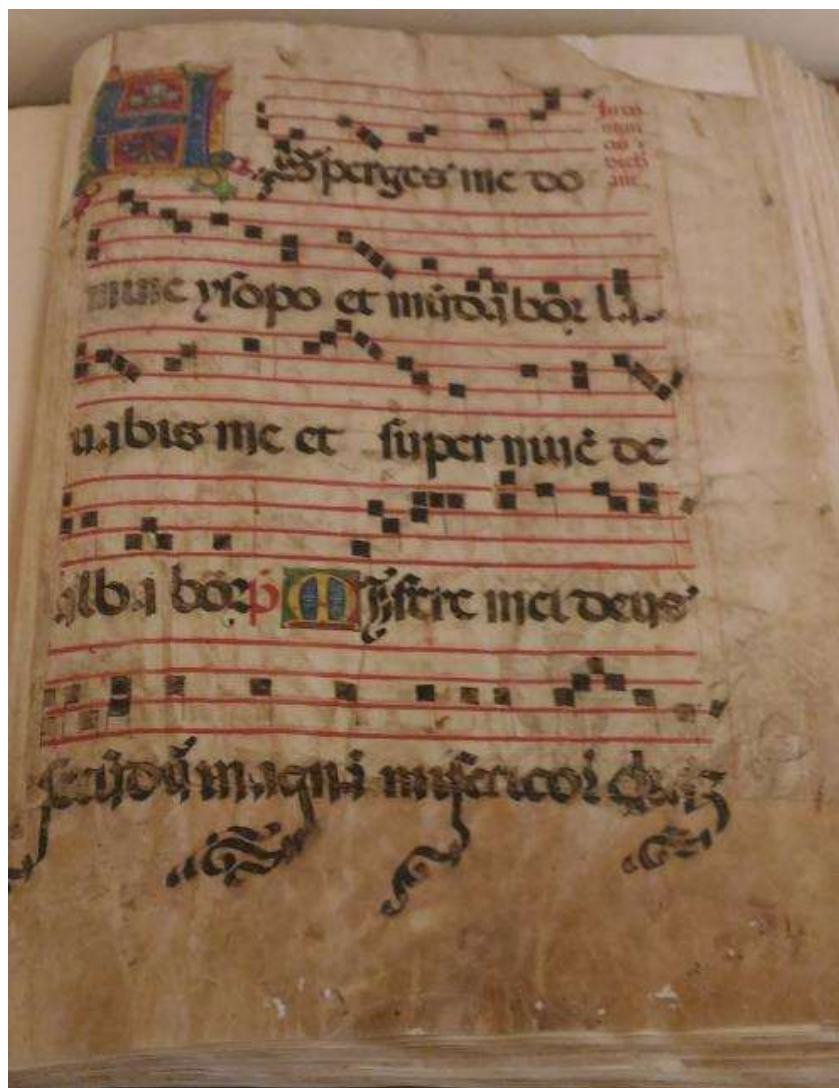 Asperges me do
mine ysopo et mūdabor la
uabis me et super niuē de
albabor p̄ Misere mei deus
secūdū magnā misericordiaʒ